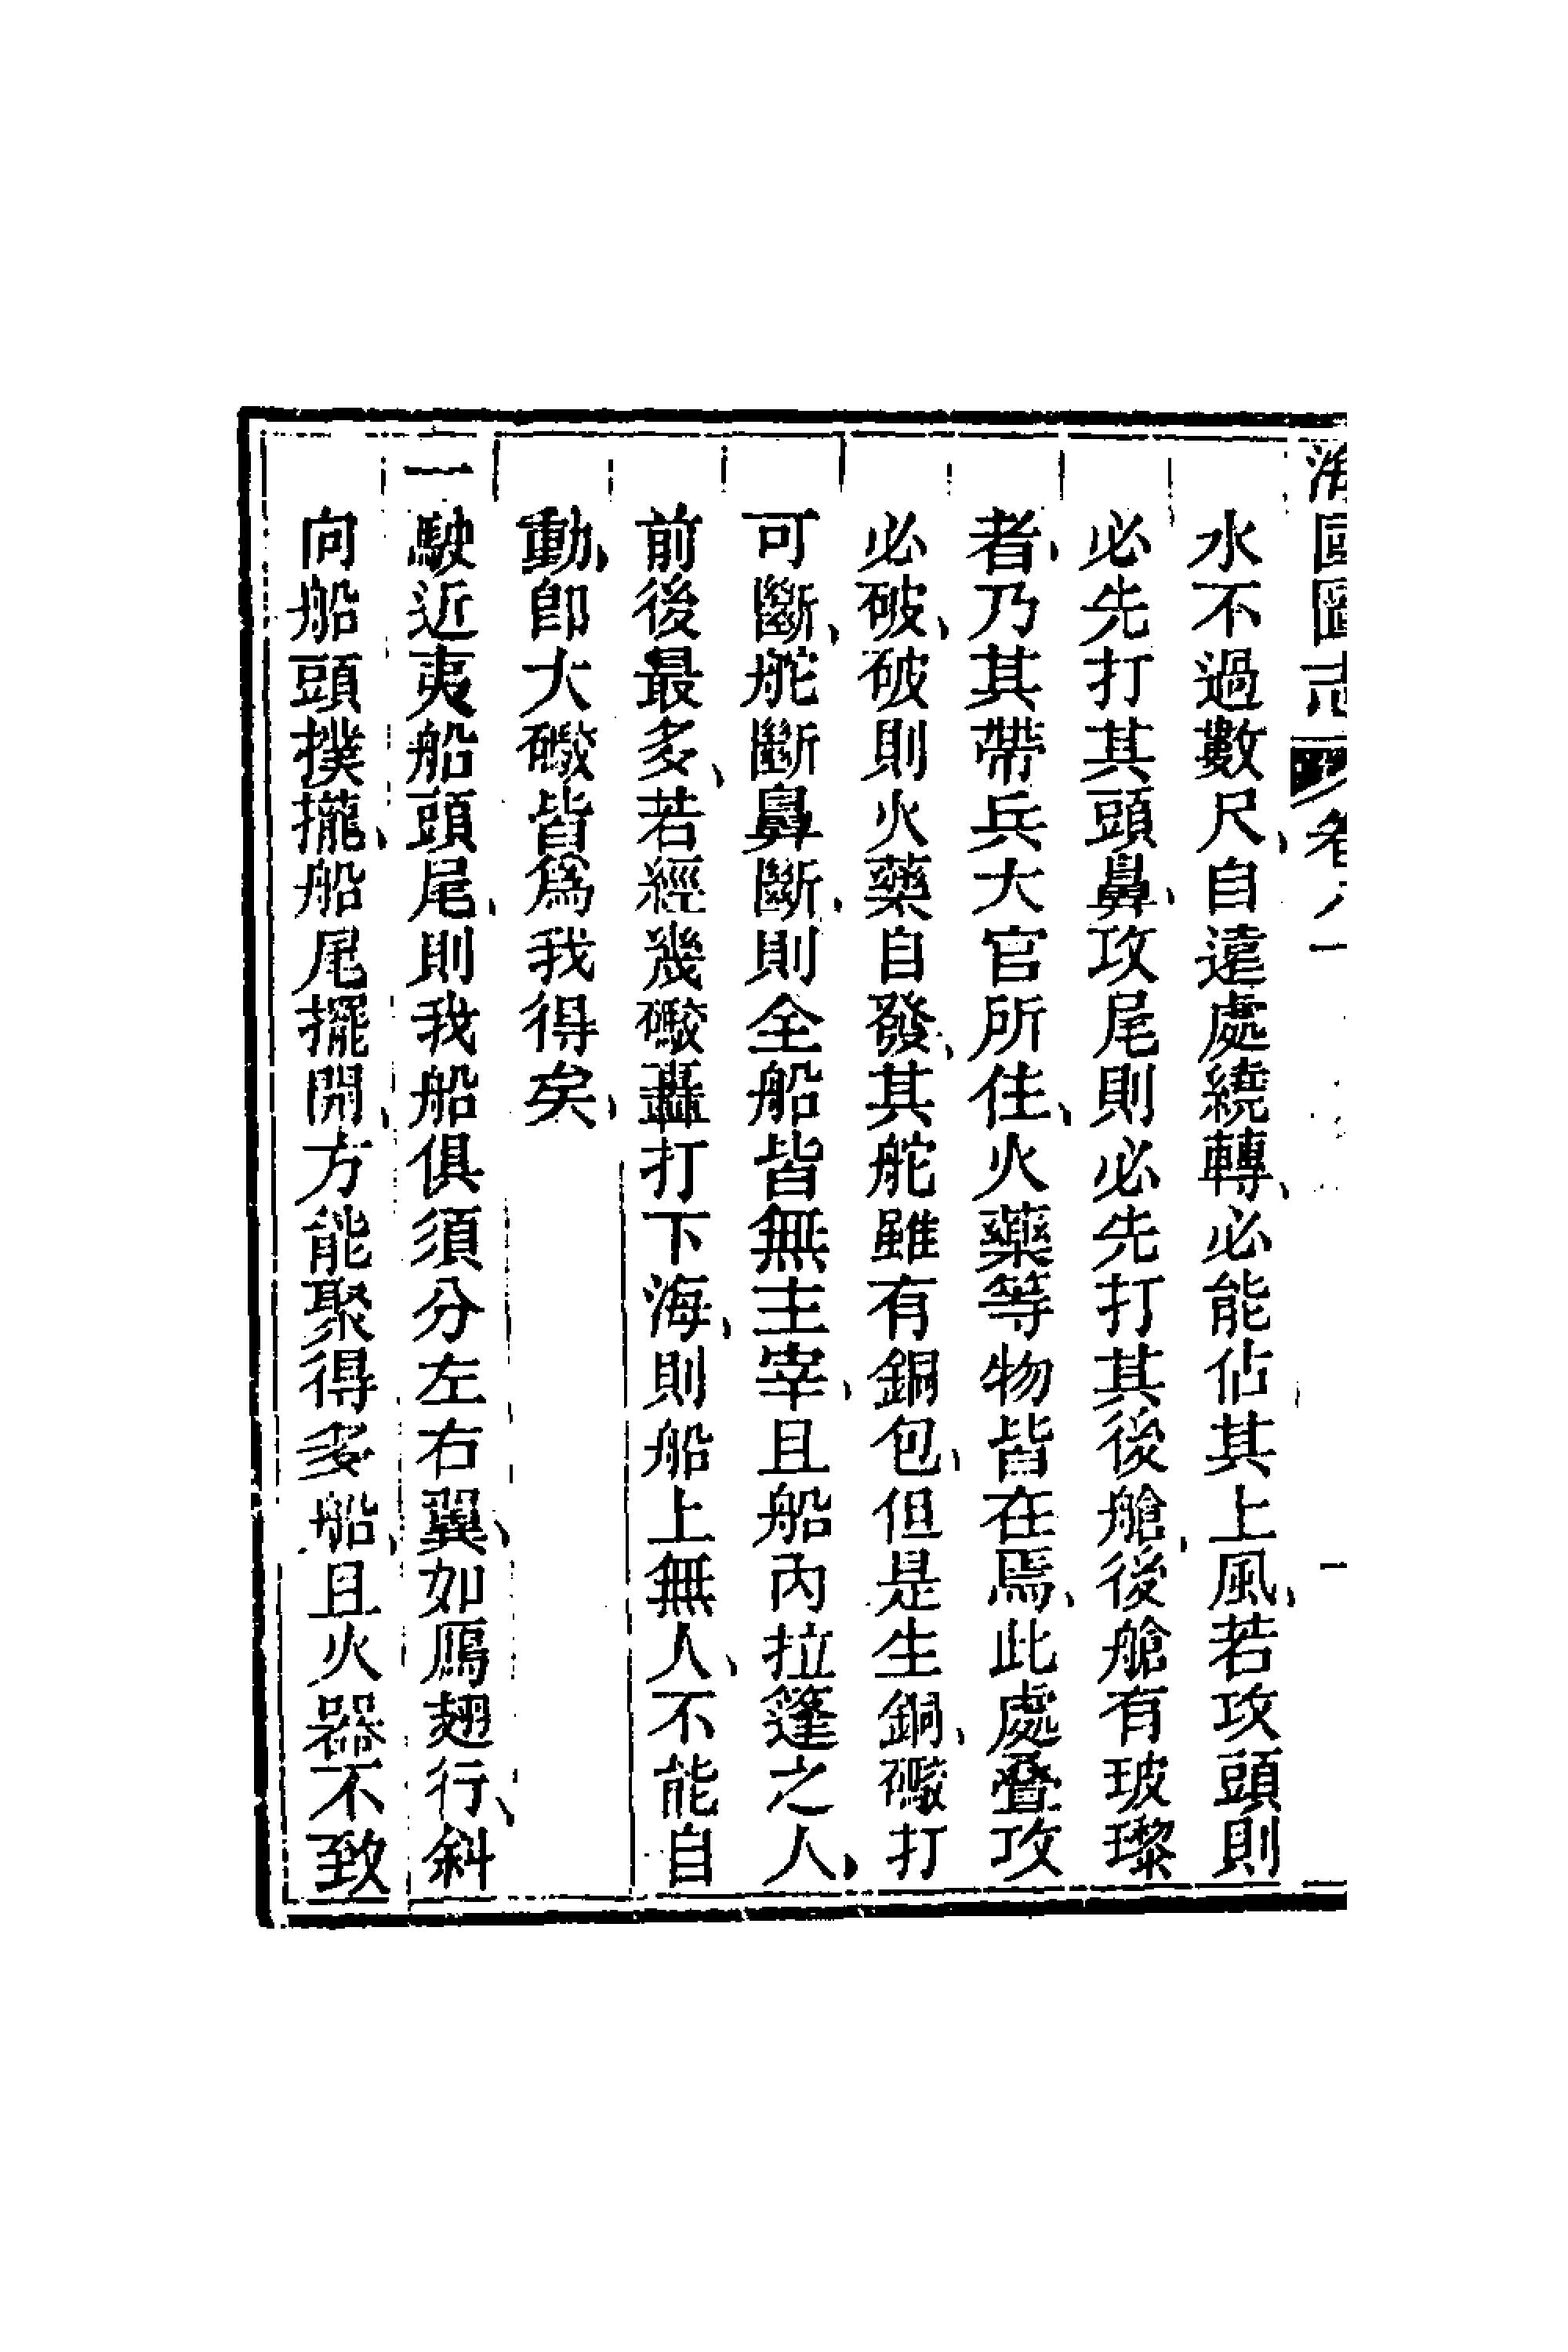 海國圖志 卷八十 一
水不過數尺、自遠處繞轉、必能佔其上風、若攻頭則
必先打其頭鼻、攻尾則必先打其後艙、後艙有玻瓈
者、乃其帶兵大官所住、火藥等物皆在焉、此處疊攻
必破、破則火藥自發、其舵雖有銅包、但是生銅、礮打
可斷、舵斷鼻斷、則全船皆無主宰、且船內拉篷之人、
前後最多、若經幾礮轟打下海、則船上無人、不能自
動、卽大礮皆爲我得矣、
一駛近夷船頭尾、則我船俱須分左右翼、如鴈翅行、斜
向船頭撲攏、船尾擺開、方能聚得多船、且火器不致